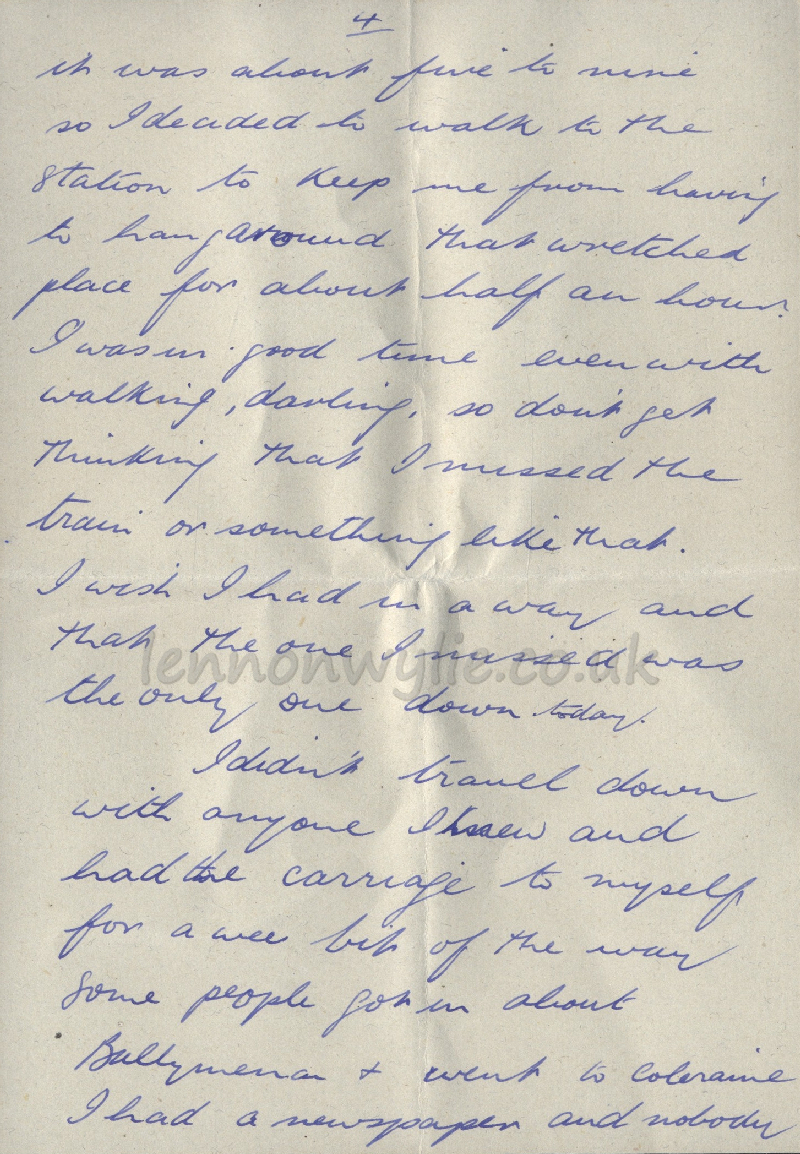 4
it was about five to nine
so I decided to walk to the
station to keep me from having
to hang around that wretched
place for about half an hour.
I was in good time even with
walking, darling, so don't get
thinking that I missed the
train or something like that.
I wish I had in a way and
that the one I missed was
lennonwylie.co.uk
the only one down today.
I didn't travel down
with anyone I knew and
had the carriage to myself
for a wee bit of the way
some people got in about
Ballymena + went to Coleraine
I had a newspaper and nobody